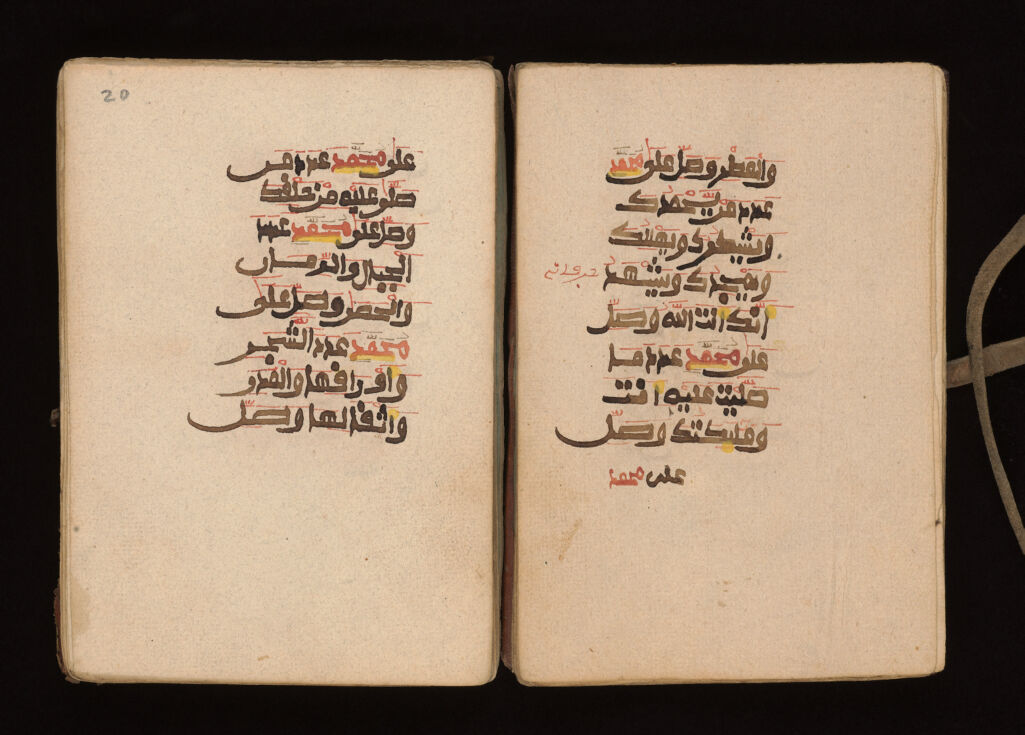 والمطر وصل على محمد
عدد من يحمدك
ويشكرك ويهللك
ويمجدك ويشهد
انك انت الله وصل
على محمد عدد ما
صليت عليه انت
وملئكتك وصل
على محمد
20
على محمد عدد من
صلى عليه من خلقك
وصل على محمد عدد
الجبال والرمال
والحصى وصل على
محمد عدد الشجر
واوراقها والمدر
واثقالها وصل